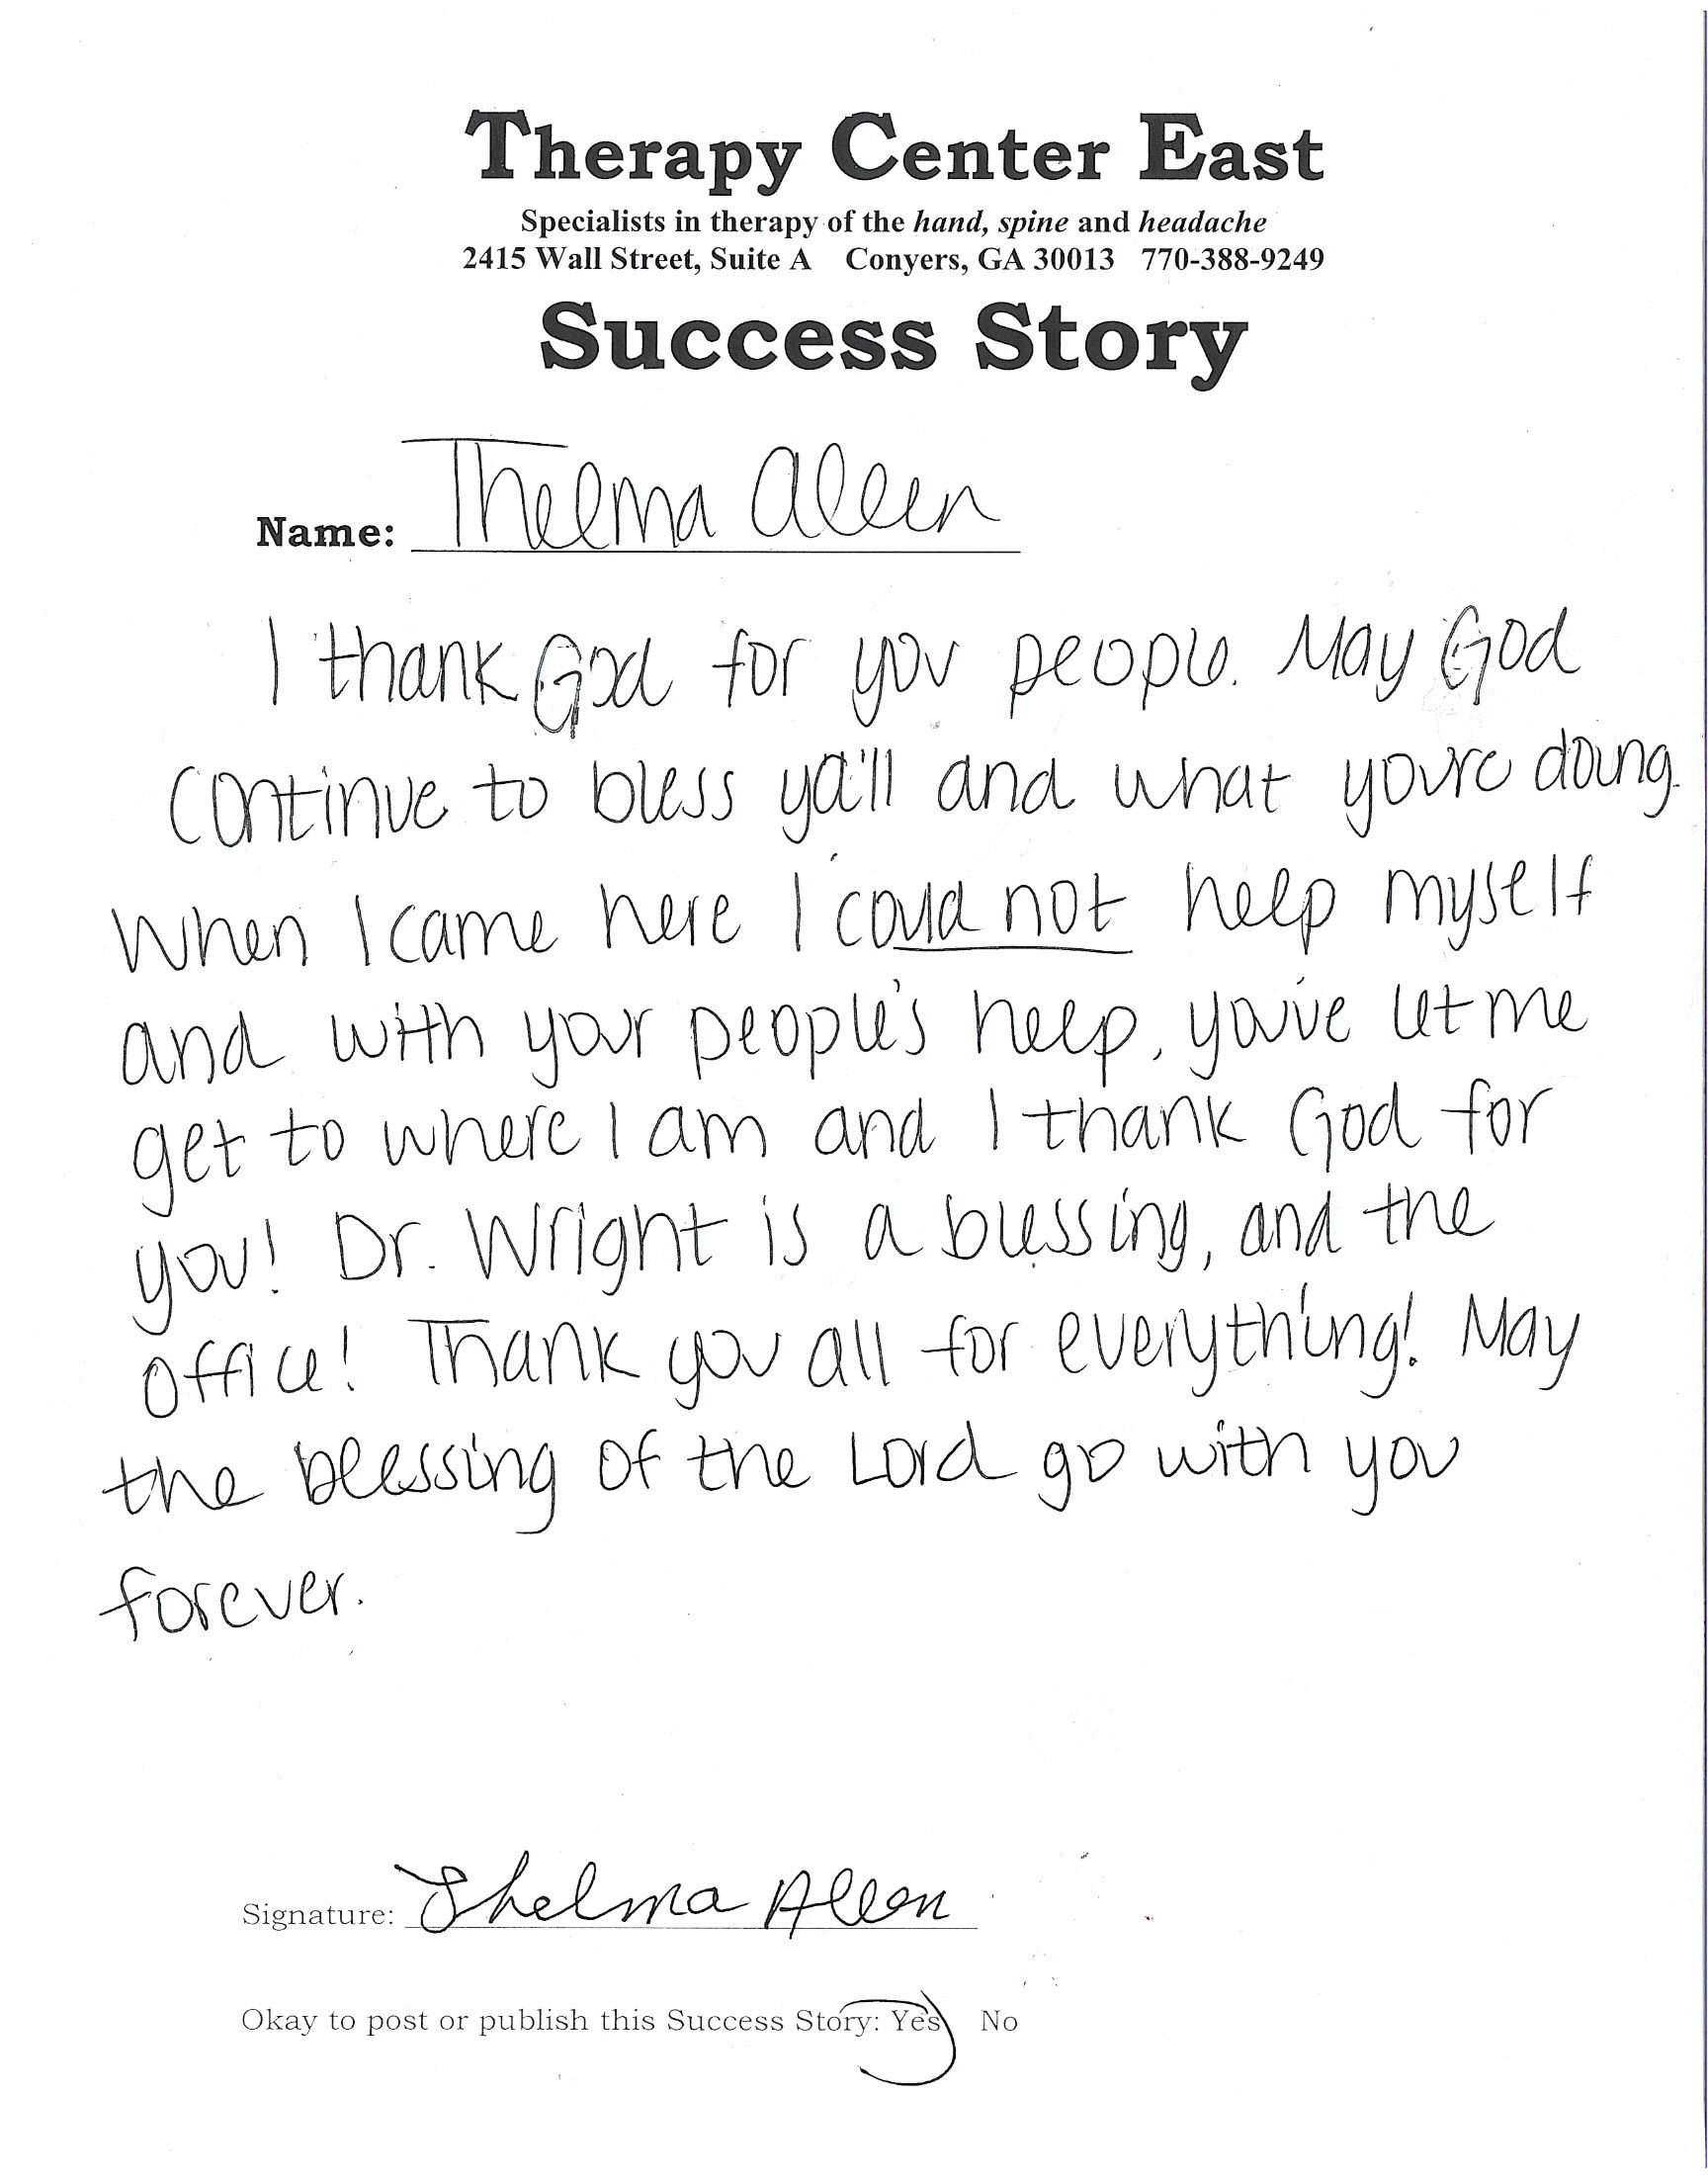 Therapy Center East
Specialists in therapy of the hand, spine and headache
2415 Wall Street, Suite A Conyers, GA 30013 770-388-9249
Success Story
Name: Thelma Allen
I thank God for you people. May God
continue to bless ya'll and what you're doing.
When I came here I could not help myself
and with your people's help, you've let me
get to where I am and I thank God for
you! Dr. Wright is a blessing, and the
office! Thank you all for everything! May
the blessing of the Lord go with you
forever.
Signature: Thelma Allen
Okay to post or publish this Success Story: Yes No